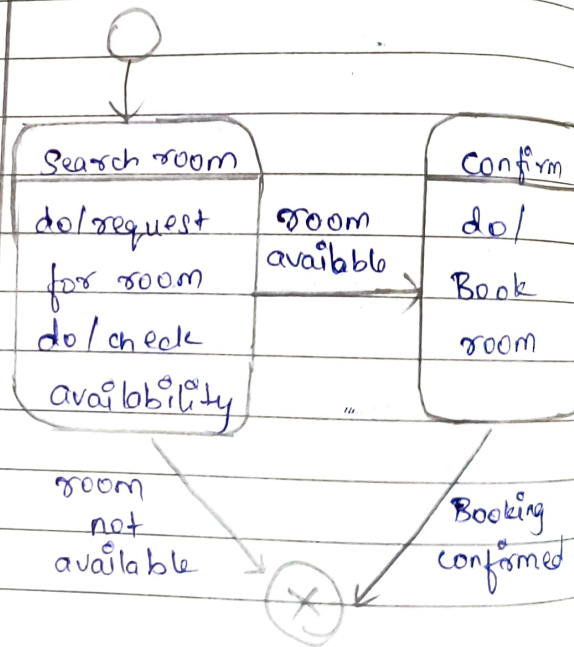 Search room
do/request
for room
do/check
availability
room
available
Confirm
do/
Book
room
room
not
available
Booking
confirmed